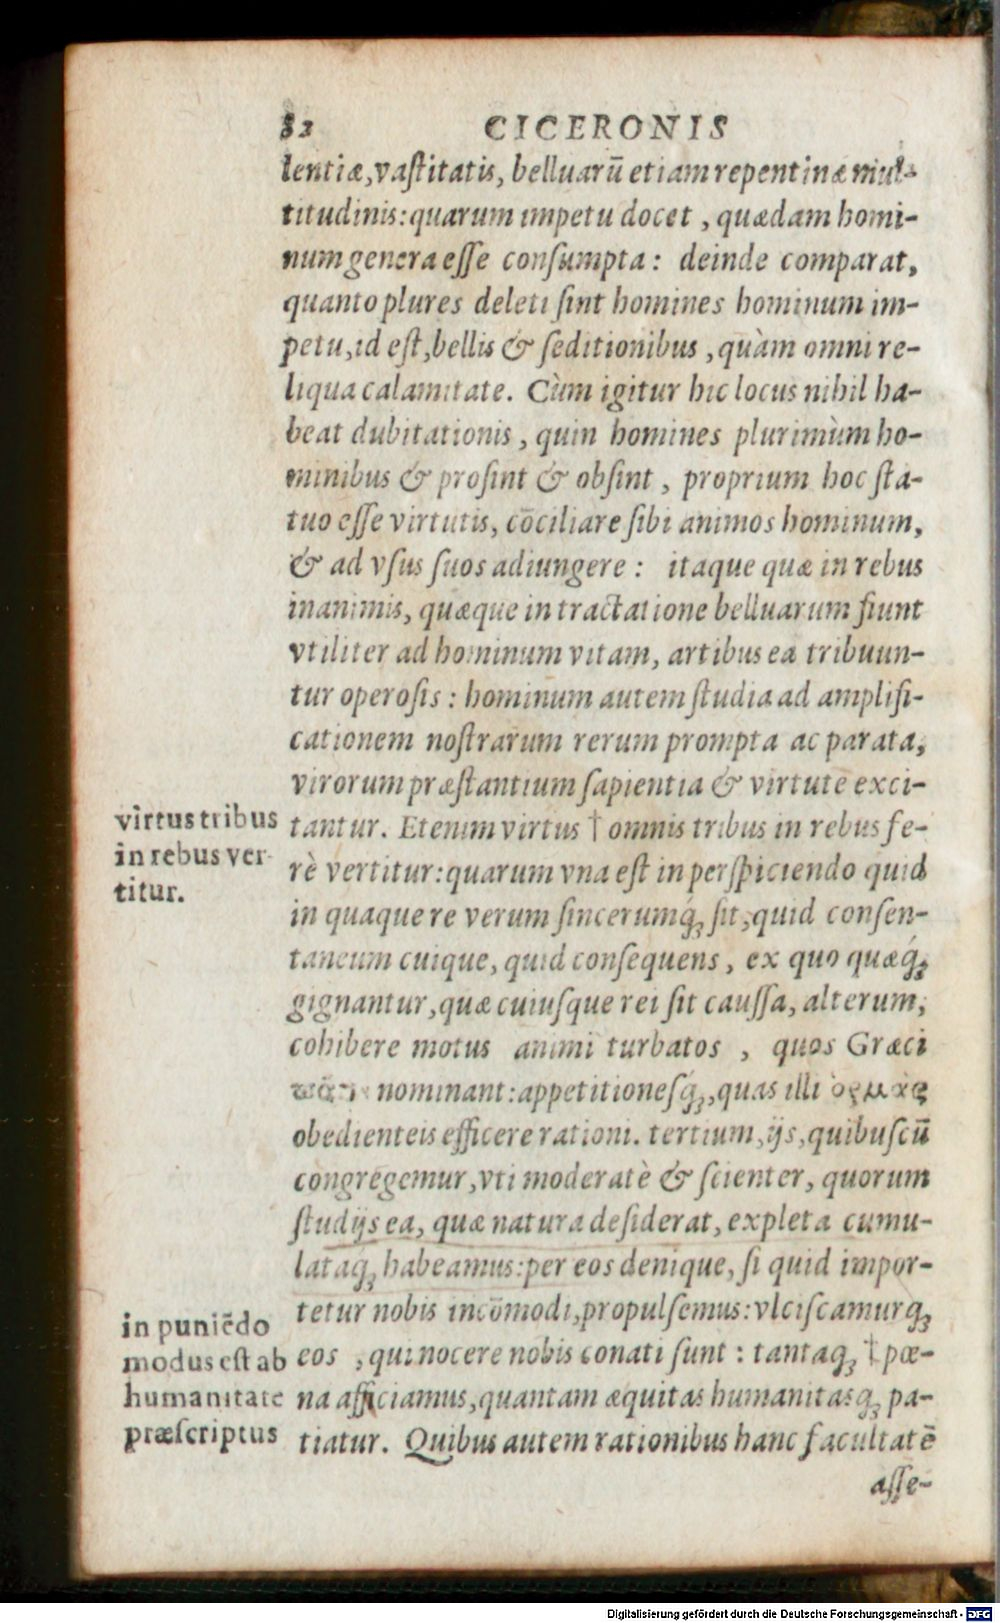 82 CICERONIS
lentiæ, vaſtitatis, belluarũ etiam repentinæ mul-
titudinis: quarum impetu docet, quædam homi-
num genera eſſe conſumpta: deinde comparat,
quanto plures deleti ſint homines hominum im-
petu, id eſt, bellis & ſeditionibus, quàm omni re-
liqua calamitate. Cùm igitur hic locus nihil ha-
beat dubitationis, quin homines plurimùm ho-
minibus & proſint & obſint, proprium hoc ſta-
tuo eſſe virtutis, cõciliare ſibi animos hominum,
& ad vſus ſuos adiungere: itaque quæ in rebus
inanimis, quæque in tractatione belluarum fiunt
vtiliter ad hominum vitam, artibus ea tribuun-
tur operoſis: hominum autem ſtudia ad amplifi-
cationem noſtrarum rerum prompta ac parata,
virorum præſtantium ſapientia & virtute exci-
virtus tribus
in rebus ver-
titur.
tantur. Etenim virtus † omnis tribus in rebus fe-
rè vertitur: quarum vna eſt in perſpiciendo quid
in quaque re verum ſincerumq́ꝫ ſit, quid conſen-
taneum cuique, quid conſequens, ex quo quæq́ꝫ
gignantur, quæ cuiuſque rei ſit cauſſa, alterum,
cohibere motus animi turbatos, quos Græci
πάθη nominant: appetitioneſq́ꝫ, quas illi ὁρμὰς
obedienteis efficere rationi. tertium, ijs, quibuſcũ
congregemur, vti moderatè & ſcienter, quorum
ſtudijs ea, quæ natura deſiderat, expleta cumu-
lataqꝫ habeamus: per eos denique, ſi quid impor-
tetur nobis incõmodi, propulſemus: vlciſcamurqꝫ
in puniẽdo
modus eſt ab
humanitate
præſcriptus
eos, qui nocere nobis conati ſunt: tantaqꝫ † pœ-
na afficiamus, quantam æquitas humanitasqꝫ pa-
tiatur. Quibus autem rationibus hanc facultatẽ
aſſe-
Digitalisierung gefördert durch die Deutsche Forschungsgemeinschaft - DFG